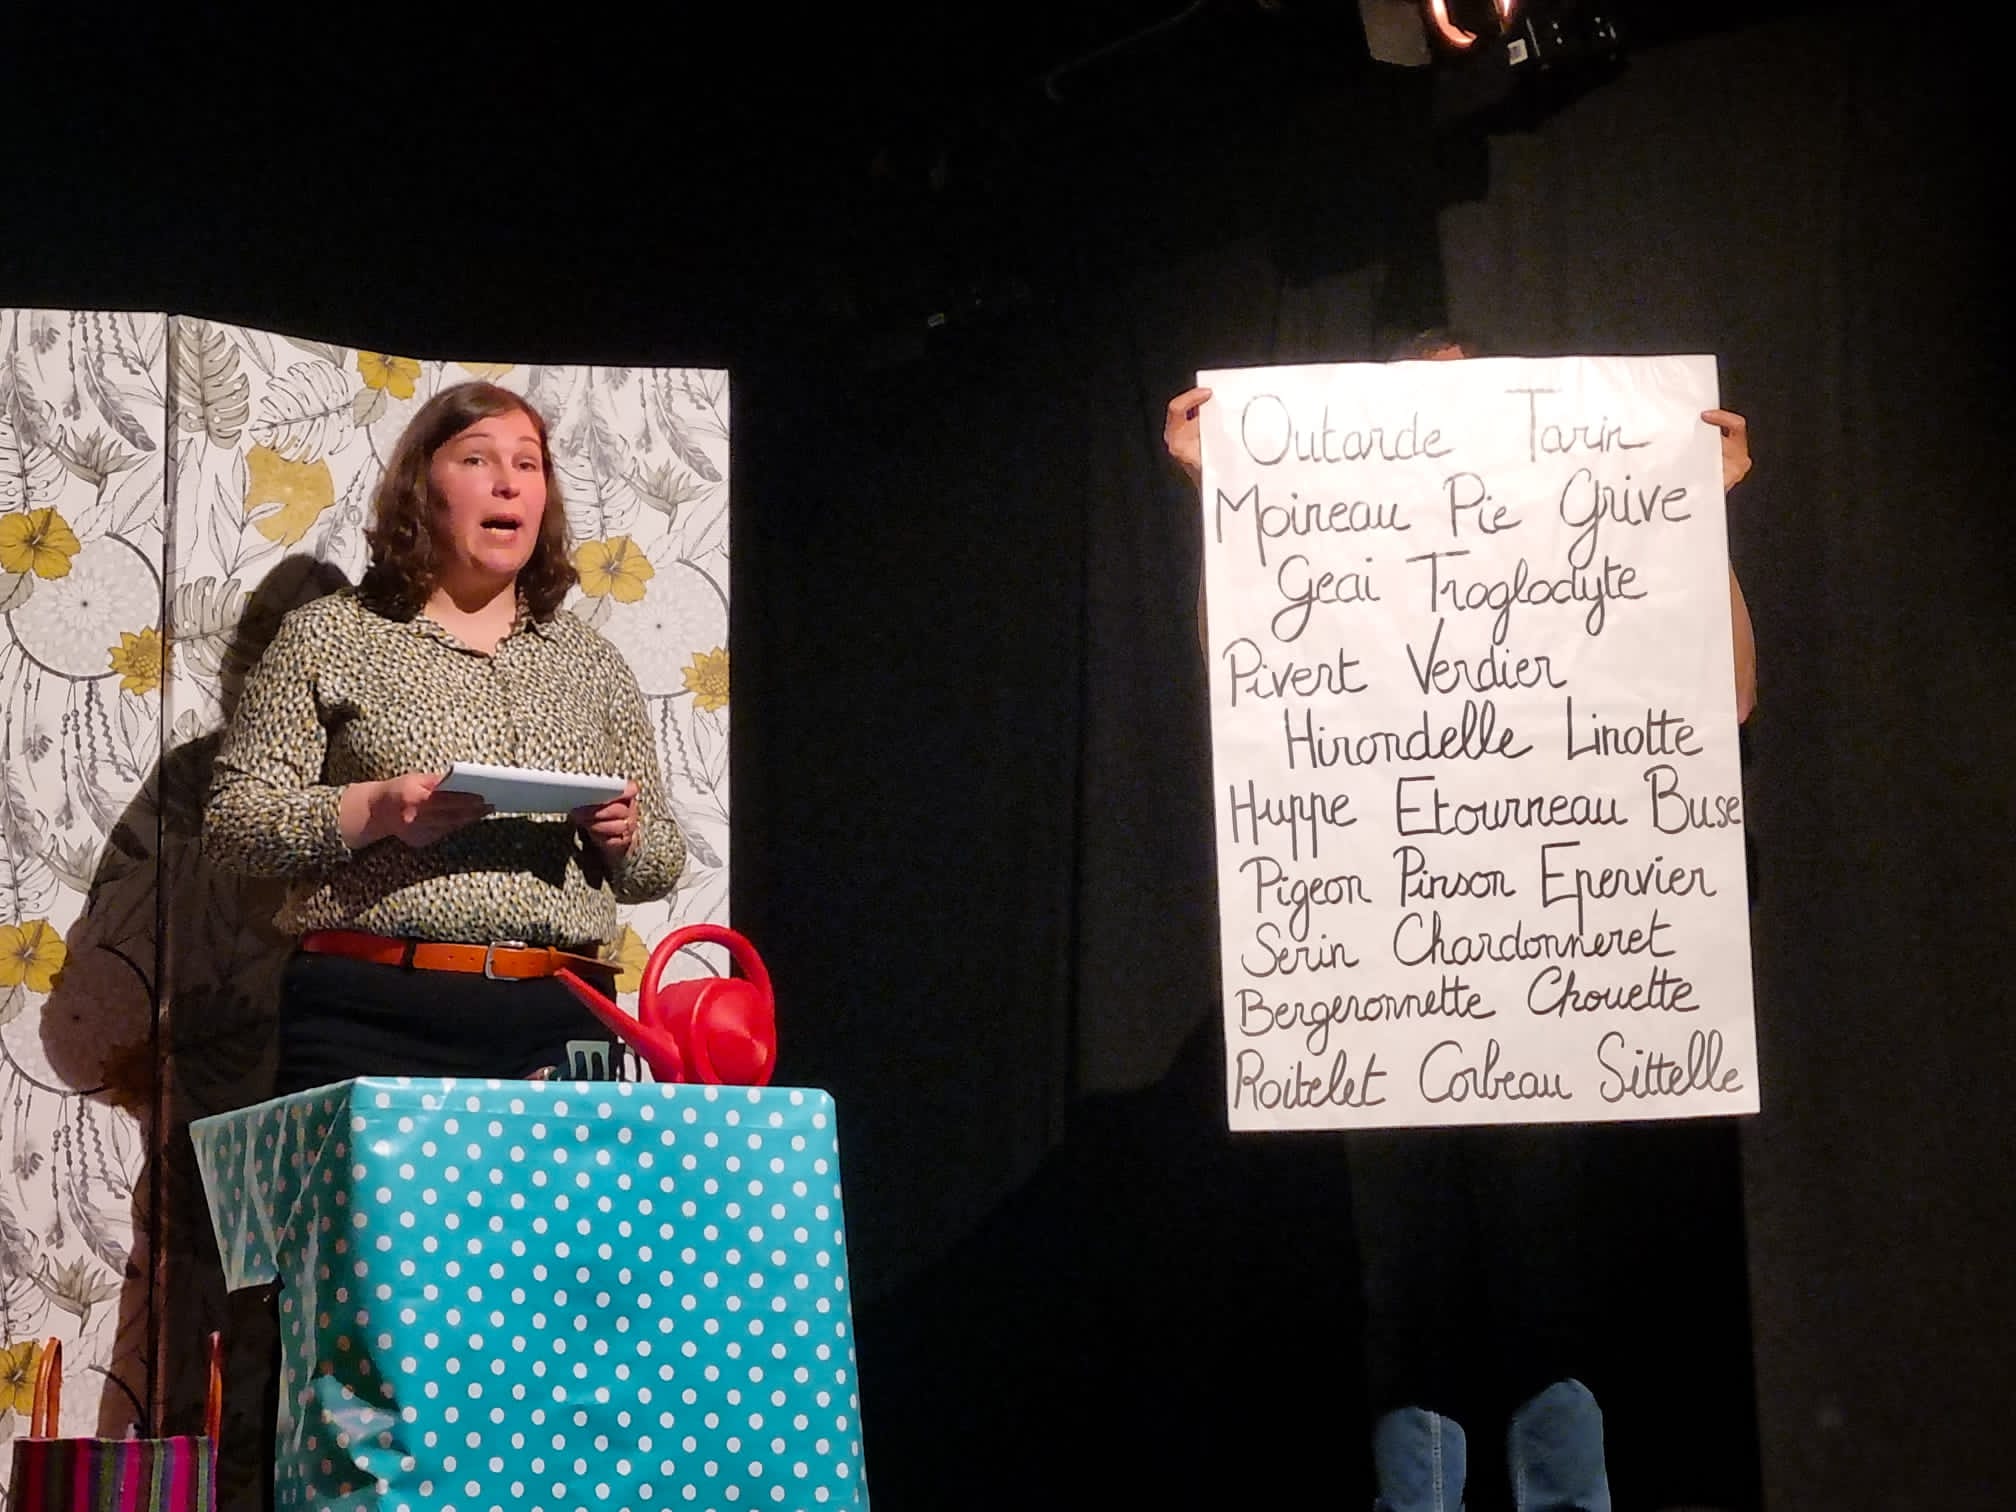 Outarde Tarin
Moineau Pie Grive
Geai Troglodyte
Pivert Verdier
Hirondelle Linotte
Huppe Etourneau Buse
Pigeon Pinson Epervier
Serin Chardonneret
Bergeronnette Chouette
Roitelet Corbeau Sittelle